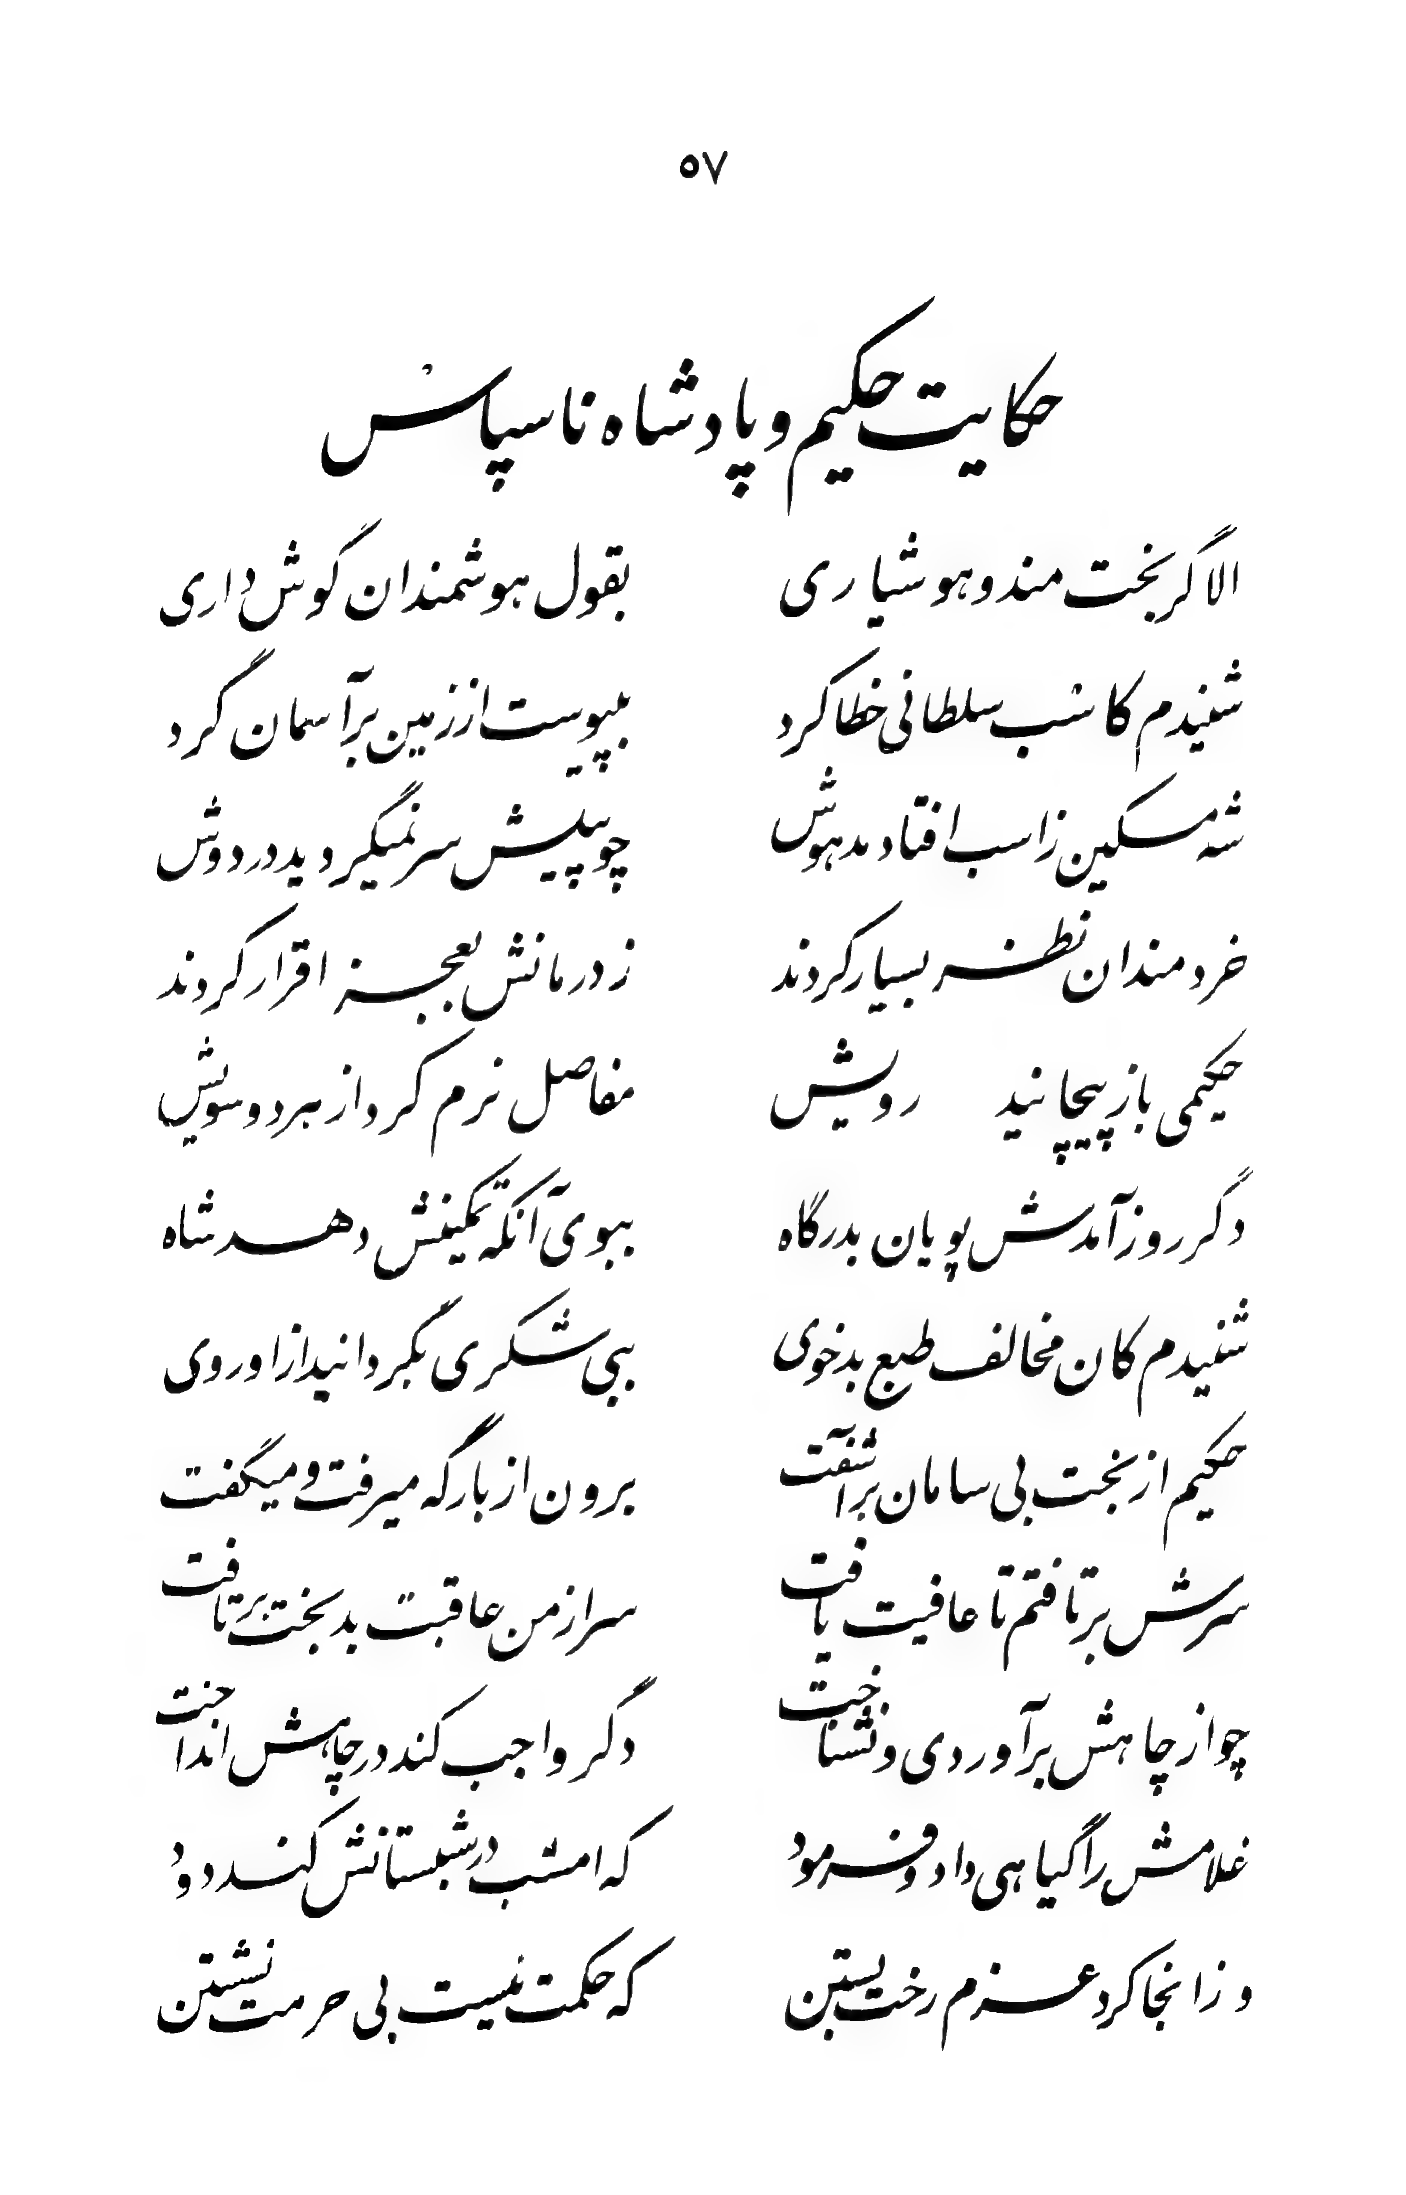 ۵۷
حکایت حکیم و پادشاه ناسپاس
الا گر بخت مند و هوشیاری بقول هوشمندان گوش داری
شنیدم کاسب سلطانی خطا کرد بپیوست از زمین بر آسمان گرد
شه مسکین ز اسب افتاد مدهوش چو پیلش سر نمیگردید در دوش
خردمندان نظر بسیار کردند ز درمانش بعجز اقرار کردند
حکیمی باز پیچانید رویش مفاصل نرم کرد از هر دو سویش
دگر روز آمدش پویان بدرگاه ببوی آنکه تمکینش دهد شاه
شنیدم کان مخالف طبع بدخوی ببی شکری بگردانید ازاو روی
حکیم از بخت بی سامان برآشفت برون از بارگه میرفت و میگفت
سرش برتافتم تا عافیت یافت سر از من عاقبت بدبخت برتافت
چو از چاهش برآوردی و نشناخت دگر واجب کند در چاهش انداخت
غلامش را گیاهی داد و فرمود که امشب در شبستانش کند دود
وز انجا کرد عزم رخت بستن که حکمت نیست بی حرمت نشستن